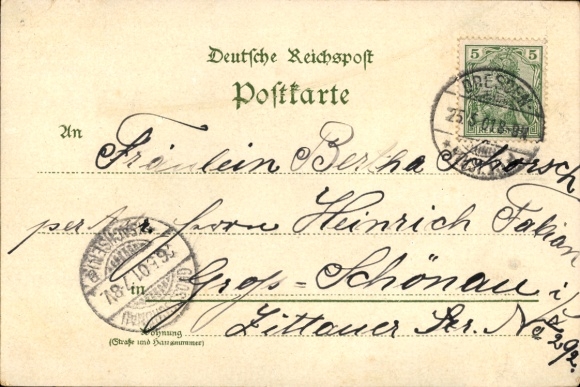 Deutsche Reichspost
Postkarte
5 5
DRESDEN
25.5.01.8-9V.
An
Fräulein Bertha Schorsch
per Herrn Heinrich Fabian
GROSSSCHÖNAU (SACHSEN)
26.5.01.7-8V.
in Groß-Schönau i/
Zittauer Str. No 292.
Wohnung
(Straße und Hausnummer)